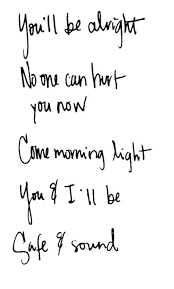 You'll be alright
No one can hurt
you now
Come morning light
You & I'll be
Safe & sound